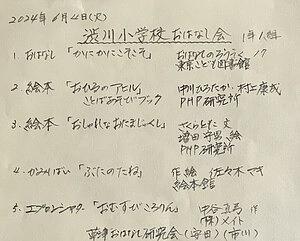 2024年6月4日(火)
渋川小学校 おはなし会 1年1組
1. おはなし 「かにかにこそこそ」 おはなしのろうそく 17
東京こども図書館
2. 絵本 「おひるのアヒル」 中川ひろたか・村上康成
ことばあそびブック PHP研究所
3. 絵本 「おしゃれなおたまじゃくし」 さくらともこ 文
塩田守男 絵
PHP研究所
4. かみしばい 「ぶたのたね」 作絵 佐々木マキ
絵本館
5. エプロンシアター 「おむすびころりん」 中谷真弓 作
(株)メイト
草津おはなし研究会 (安田) (市川)